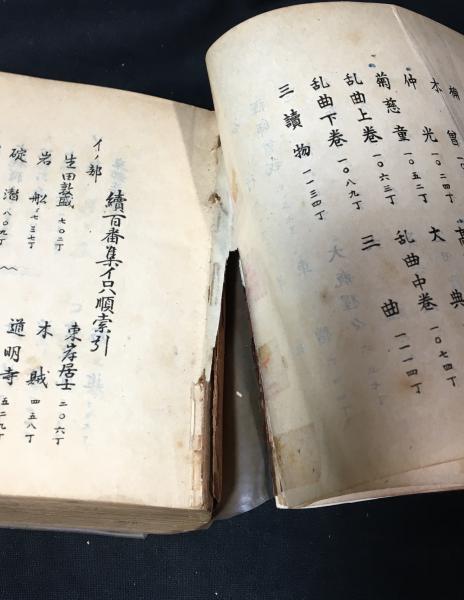 木曾 一〇二四丁
仲光 一〇五二丁
大典
菊慈童 一〇六三丁
乱曲中卷 一〇七四丁
乱曲上卷 一〇八九丁
三曲 一一一四丁
乱曲下卷
三讀物 一一三四丁
續百番集イロ順索引
イノ部
生田敦盛 七〇二丁
東岸居士 二〇六丁
岩船 七三七丁
木賊 四五八丁
碇潜 八〇九丁
道明寺 五二九丁